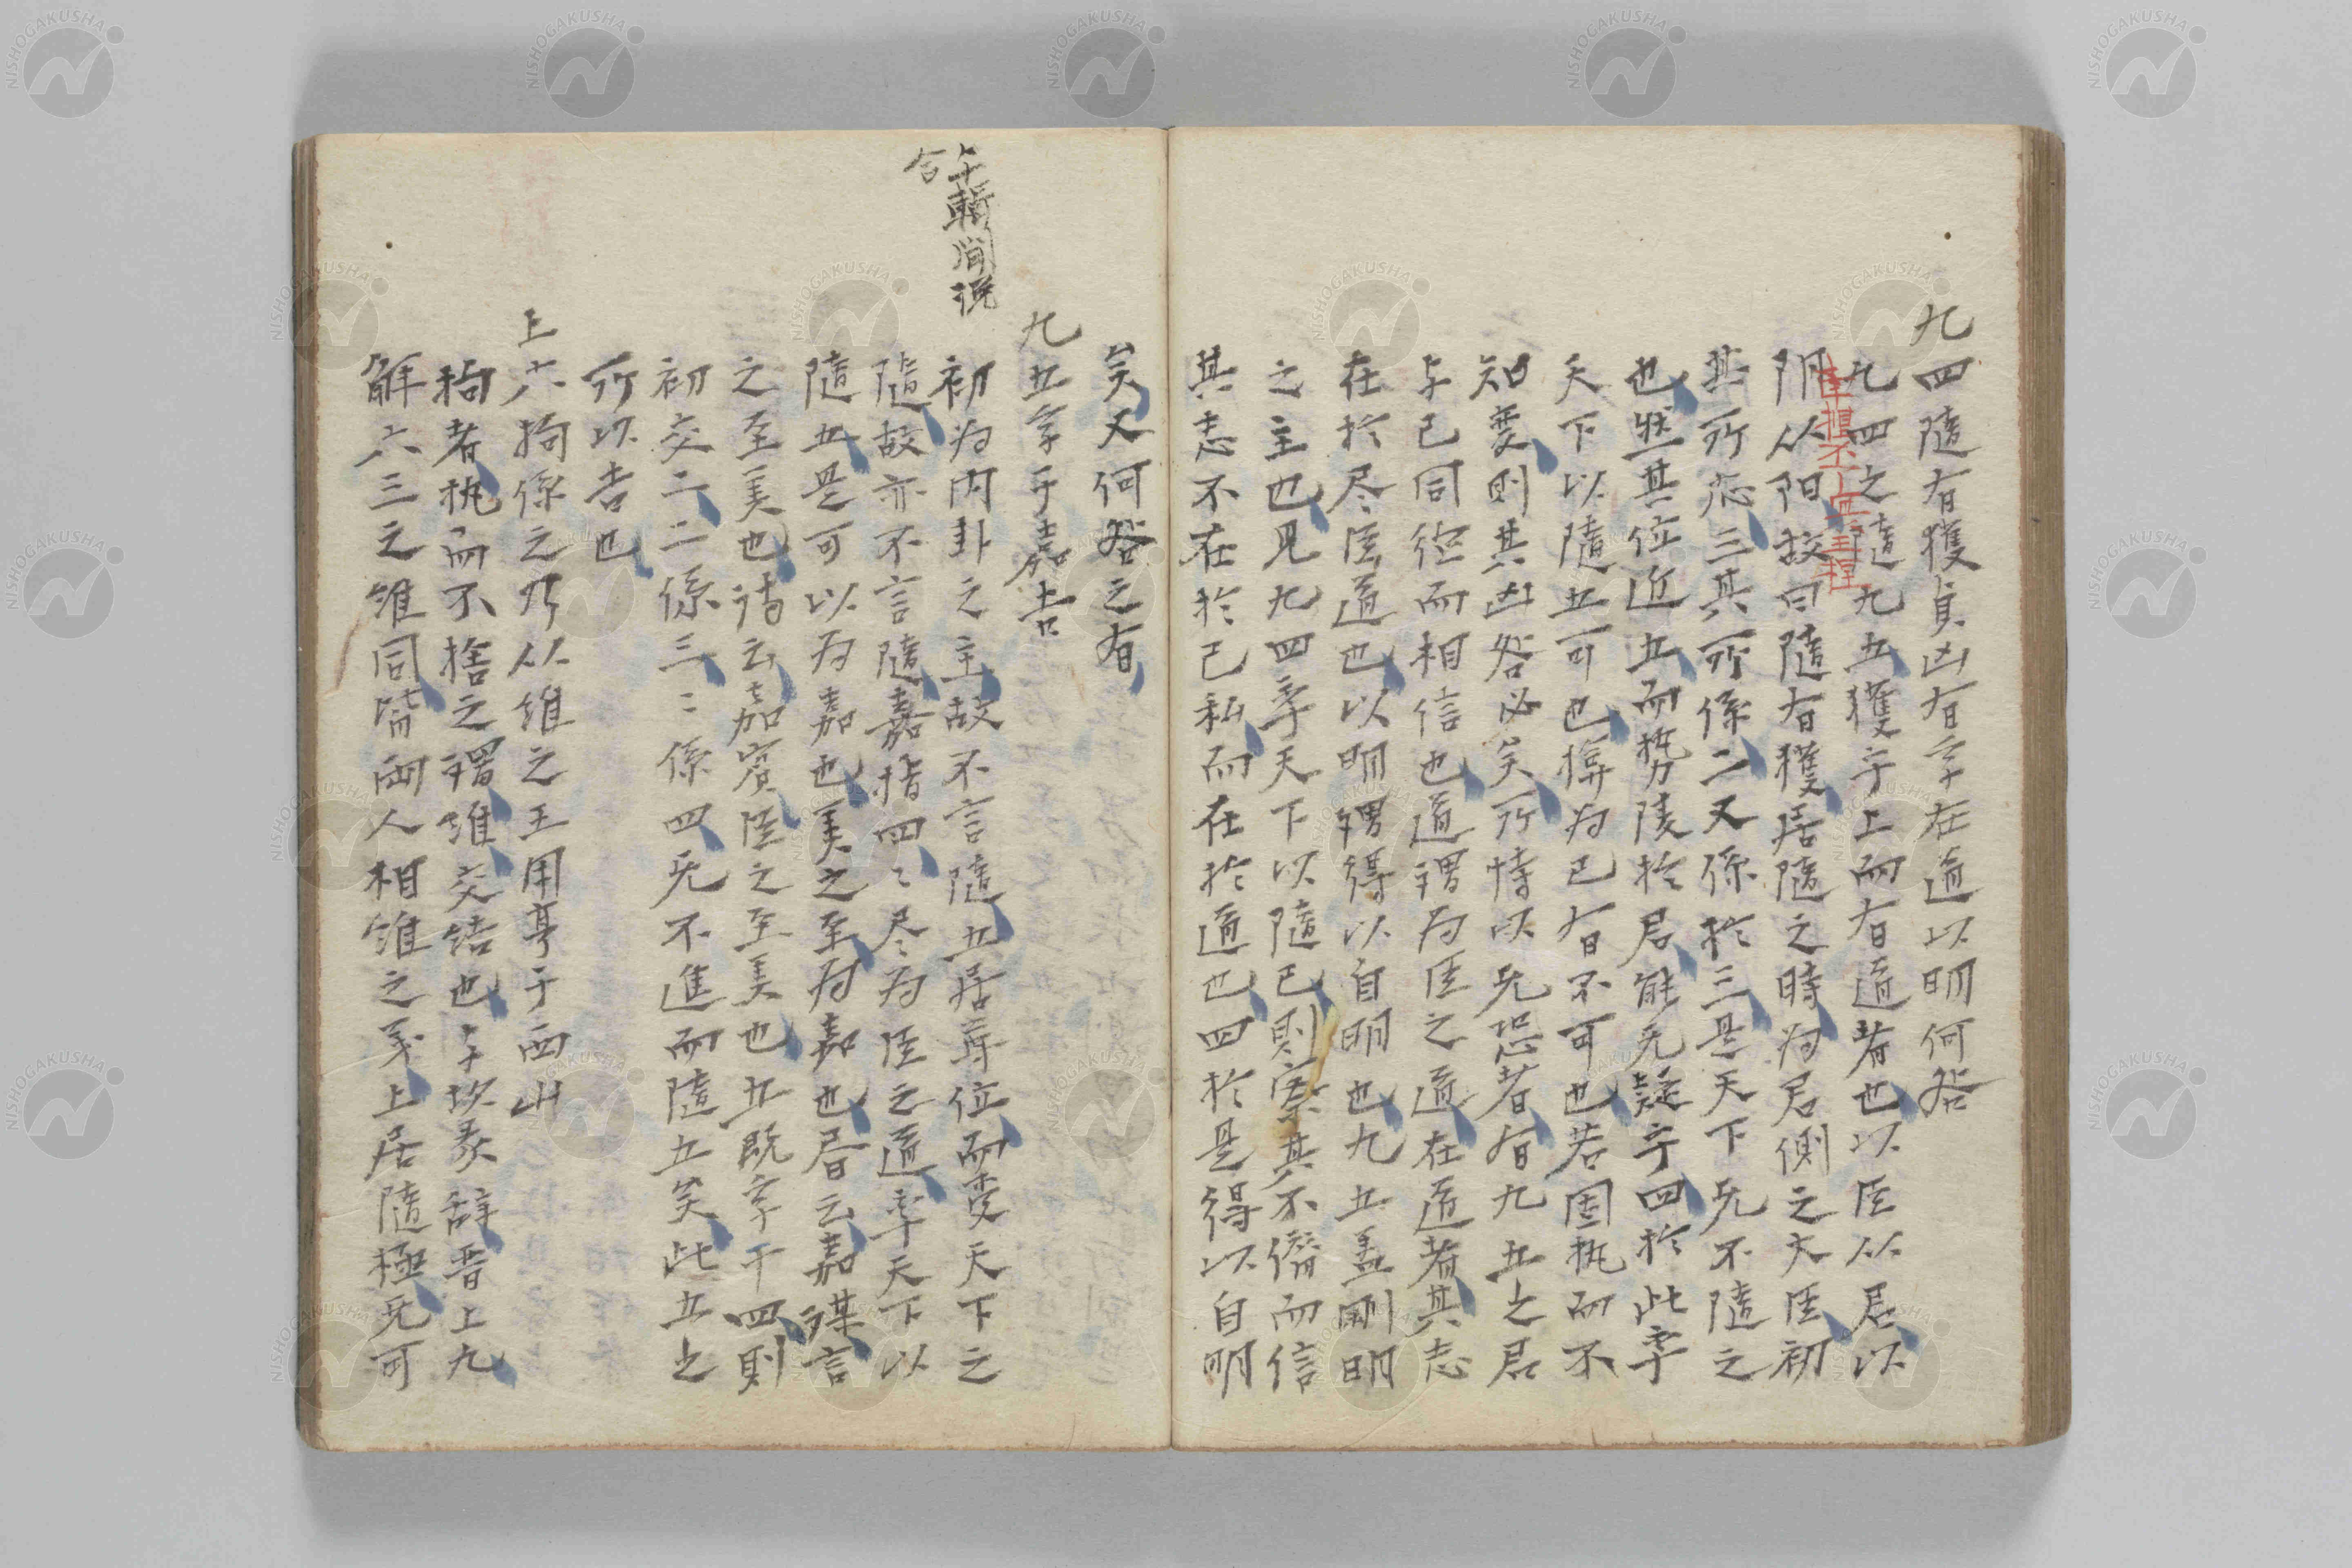 九四隨有獲貞凶有孚在道以明何咎
九四之隨九五獲于上而有道者也以臣从君以
阴从阳故曰隨有獲居隨之時为君側之大臣初
其所应三其所係二又係於三是天下无不隨之
也然其位近五而势陵於君能无疑乎四於此率
天下以隨五可也擅为己有不可也若固执而不
知变則其凶咎必矣所恃以无恐者有九五之君
与己同德而相信也道謂为臣之道在道者其志
在於尽臣道也以明謂得以自明也九五盖剛明
之主也見九四率天下以隨己則察其不僭而信
其志不在於己私而在於道也四於是得以自明
矣又何咎之有
九五孚于嘉吉
初为内卦之主故不言隨五居尊位而受天下之
隨故亦不言隨嘉指四〻尽为臣之道率天下以
隨五是可以为嘉也美之至为嘉也書云嘉謀言
之至美也詩云嘉賓臣之至美也五既孚于四則
初交二二係三〻係四无不進而隨五矣此五之
所以吉也
上六拘係之乃从維之王用亨于西山
拘者执而不捨之謂維交結也与坎彖辞晋上九
解六三之維同皆兩人相維之義上居隨極无可
与輶間説
合
NISHOGAKUSHA